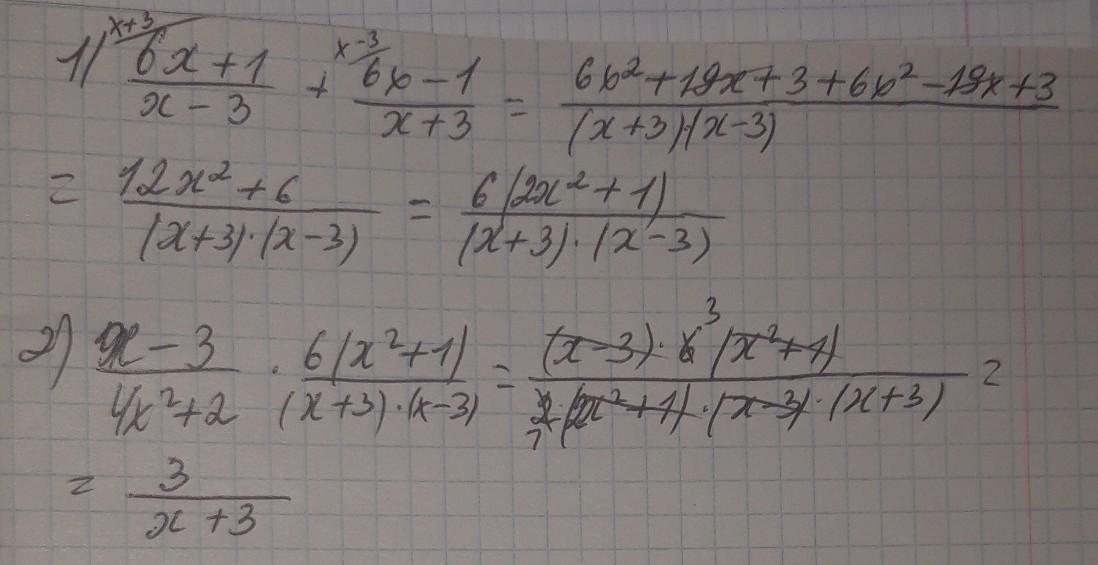 1) (6x+1)/(x-3) ^(x+3) + (6x-1)/(x+3) ^(x-3) = (6x²+19x+3+6x²-19x+3)/((x+3)·(x-3))
= (12x²+6)/((x+3)·(x-3)) = (6(2x²+1))/((x+3)·(x-3))
2) (x-3)/(4x²+2) · (6(x²+1))/((x+3)·(x-3)) = ((x-3)·6 ^3 (x²+1))/(2 _1 (2x²+1)·(x-3)·(x+3)) =
= 3/(x+3)